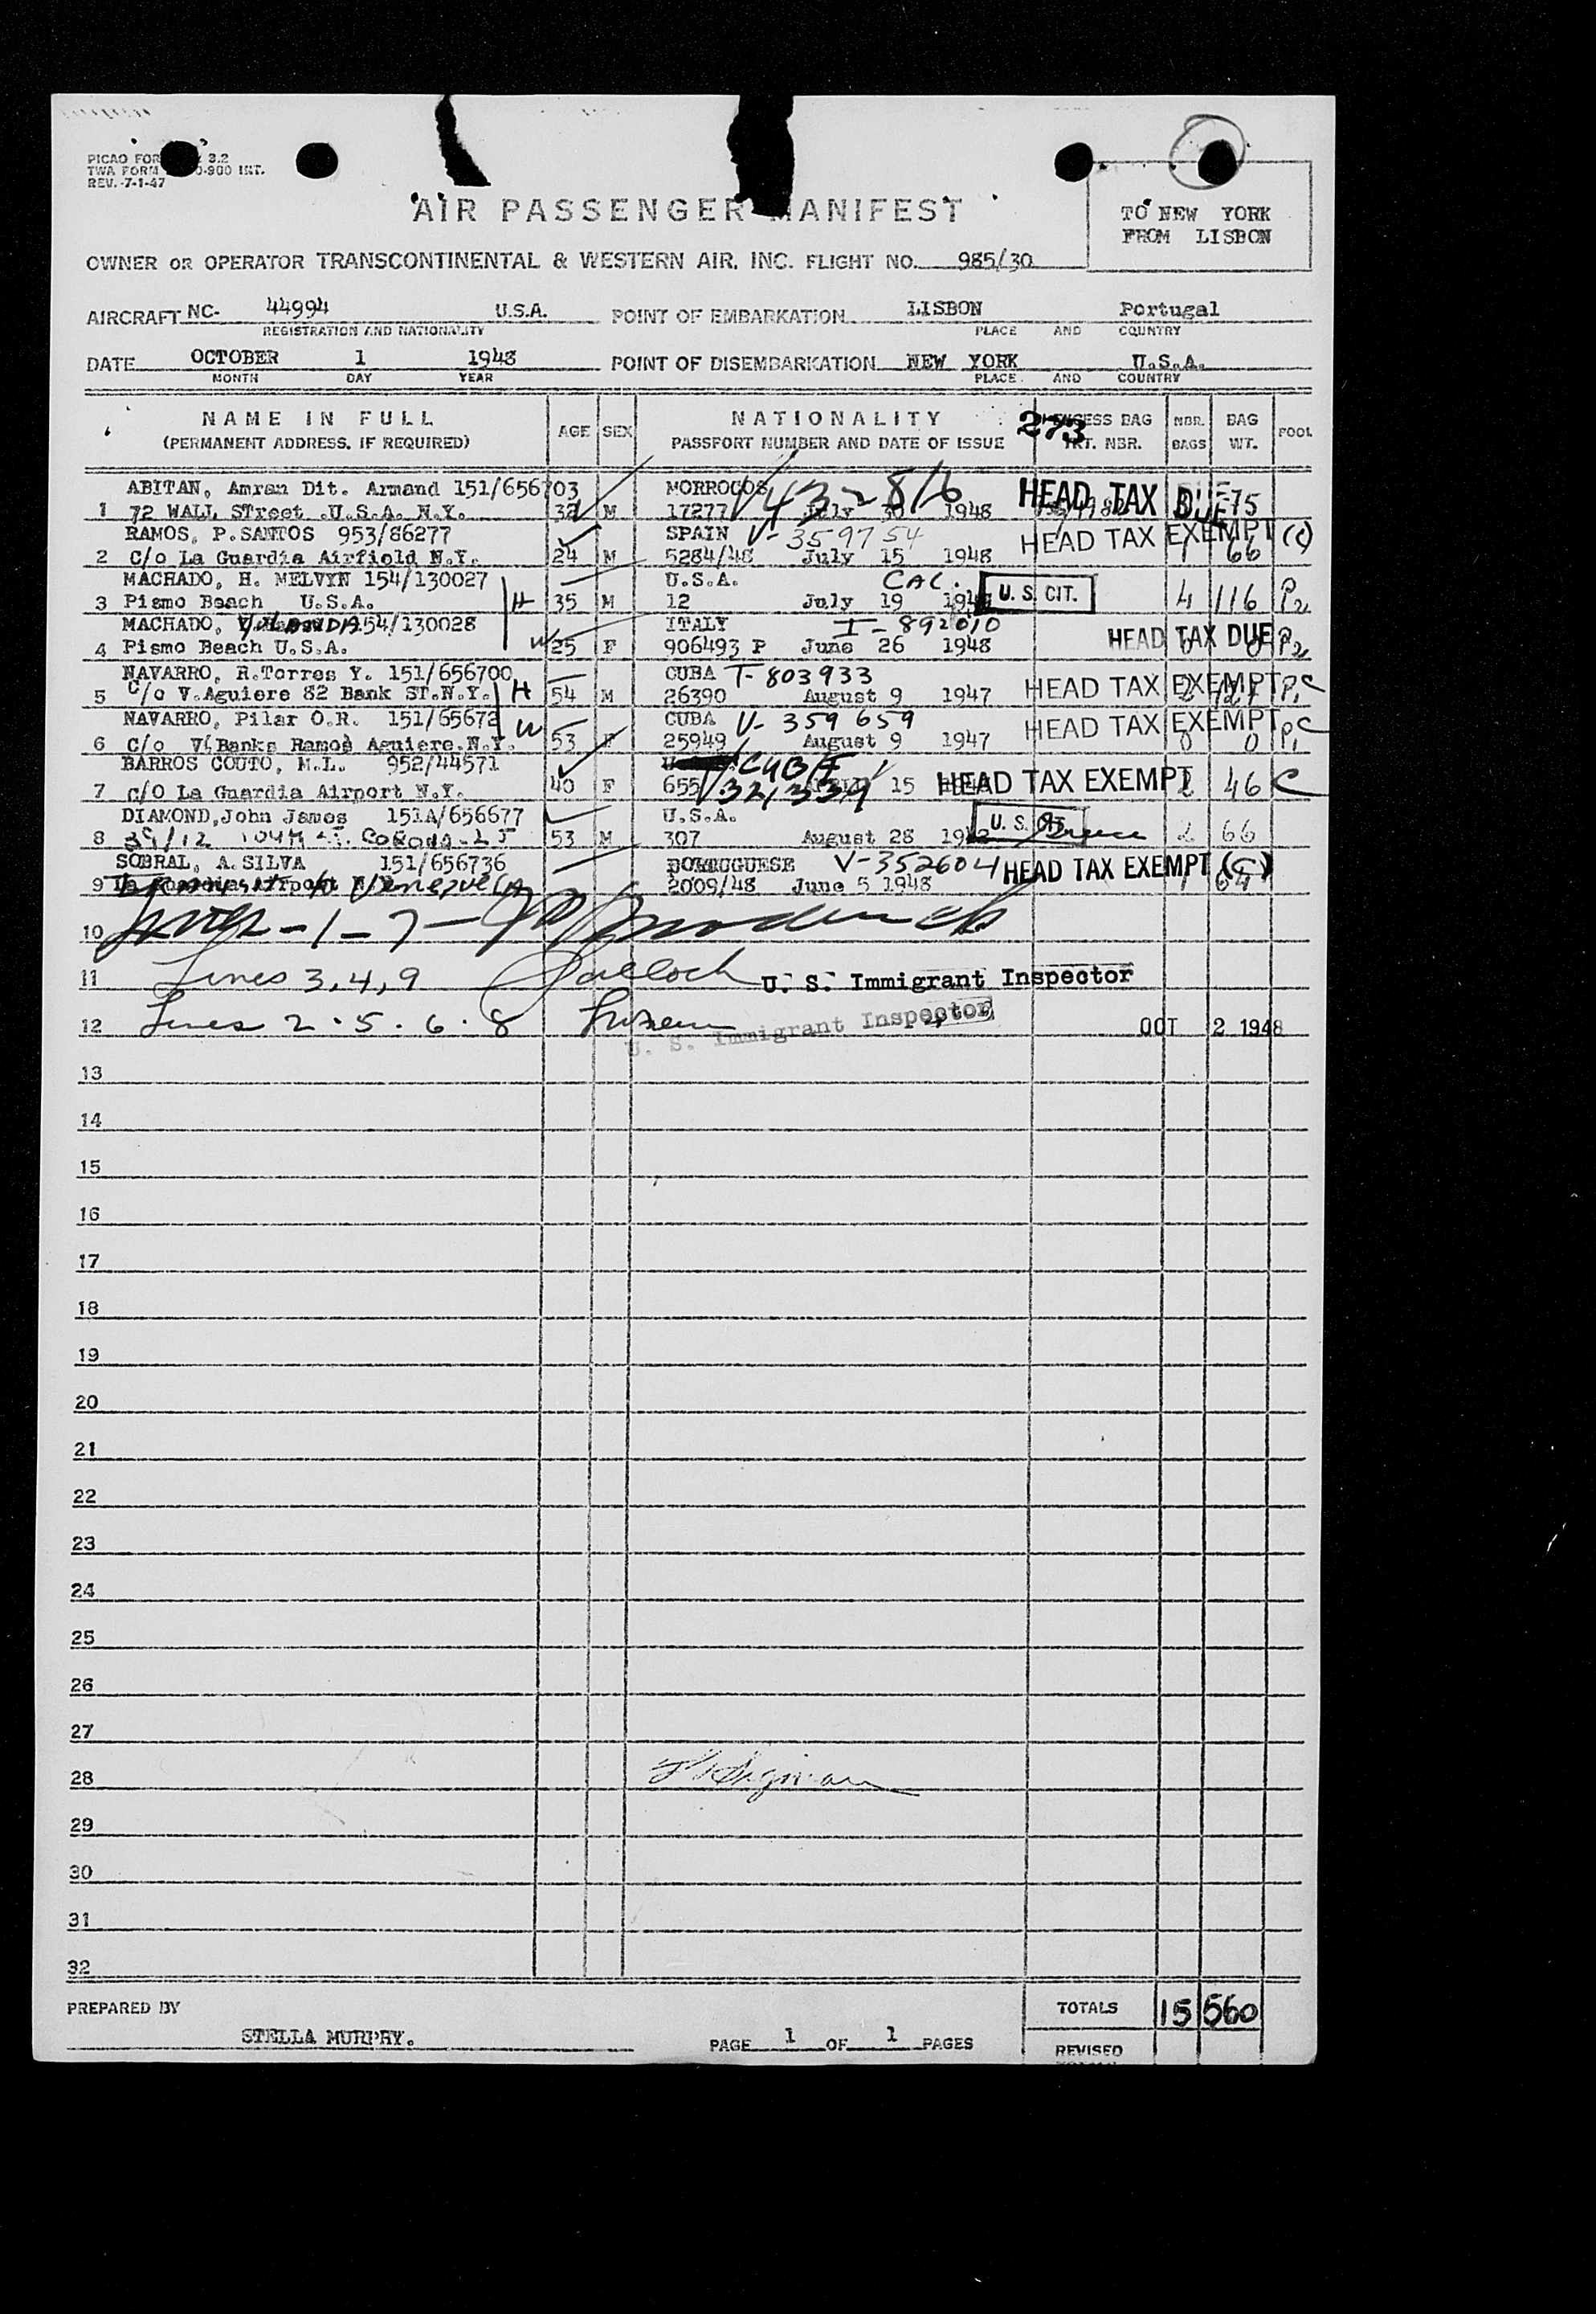 PICAO FOR 3.2
TWA FORM 0-900 INT.
REV.-7-1-47
AIR PASSENGER MANIFEST
TO NEW YORK
FROM LISBON
OWNER OR OPERATOR TRANSCONTINENTAL & WESTERN AIR, INC. FLIGHT NO. 985/30
AIRCRAFT NC- 44994 U.S.A. POINT OF EMBARKATION LISBON Portugal
REGISTRATION AND NATIONALITY PLACE AND COUNTRY
DATE OCTOBER 1 1948 POINT OF DISEMBARKATION NEW YORK U.S.A.
MONTH DAY YEAR PLACE AND COUNTRY
NAME IN FULL AGE SEX NATIONALITY 273 EXCESS BAG NBR. BAG POOL
(PERMANENT ADDRESS, IF REQUIRED) PASSPORT NUMBER AND DATE OF ISSUE TKT. NBR. BAGS WT.
ABITAN, Amran Dit. Armand 151/656703 MORROCOS V432816 HEAD TAX DUE 75
1 72 WALL STreet .U.S.A. N.Y. 32 M 17277 July 30 1948
RAMOS, P.SANTOS 953/86277 SPAIN V-359754 HEAD TAX EXEMPT (C)
2 C/o La Guardia Airfield N.Y. 24 M 5284/48 July 15 1948 1 66
MACHADO, H. MELVYN 154/130027 U.S.A. CAL. U. S. CIT.
3 Pismo Beach U.S.A. H 35 M 12 July 19 4 116 P2
MACHADO, 154/130028 ITALY I-892010 HEAD TAX DUE
4 Pismo Beach U.S.A. W 25 F 906493 P June 26 1948 0 0 P2
NAVARRO, R.Torres Y. 151/656700 CUBA T-803933 HEAD TAX EXEMPT C
5 C/o V.Aguiere 82 Bank ST.N.Y. H 54 M 26390 August 9 1947 P1
NAVARRO, Pilar O.R. 151/65672 CUBA V-359659 HEAD TAX EXEMPT C
6 C/o V(Banks Ramos) Aguiere.N.Y. W 53 F 25949 August 9 1947 0 0 P1
BARROS COUTO, M.L. 952/44571 CUBA HEAD TAX EXEMPT C
7 c/O La Guardia Airport N.Y. 40 F 655 V321339 15 2 46
DIAMOND,John James 151A/656677 U.S.A. U. S. CIT.
8 39/12 104th ST. Corona L I 53 M 307 August 28 2 66
SOBRAL, A.SILVA 151/656736 PORTUGUESE V-352604 HEAD TAX EXEMPT (C)
9 Venezuela 2009/48 June 5 1948 1 64
10 -1-7-
11 Lines 3,4,9 U. S. Immigrant Inspector
12 Lines 2.5.6.8 U. S. Immigrant Inspector OCT 2 1948
13
14
15
16
17
18
19
20
21
22
23
24
25
26
27
28
29
30
31
32
PREPARED BY TOTALS 15 560
STELLA MURPHY. PAGE 1 OF 1 PAGES REVISED